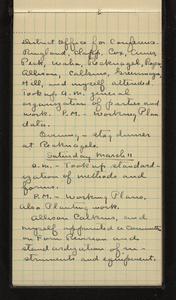 District Office for Conference.
Ringland, Clapp, Cox,
Peck, Waha, Recknagel,
Allison, Calkins, Greenamyre,
Hill, and myself attended.
Took up A.M. general
organization of parties and
work. P.M. - Working Plan
data.
Evening - stag dinner
at Recknagels.
Saturday March 11
A.M. - Took up standard-
ization of methods and
forms.
P.M. - Working Plans,
Also Planting work.
Allison, Calkins, and
myself appointed a Committee
on Form Revision and
standardization of in-
struments and equipment.